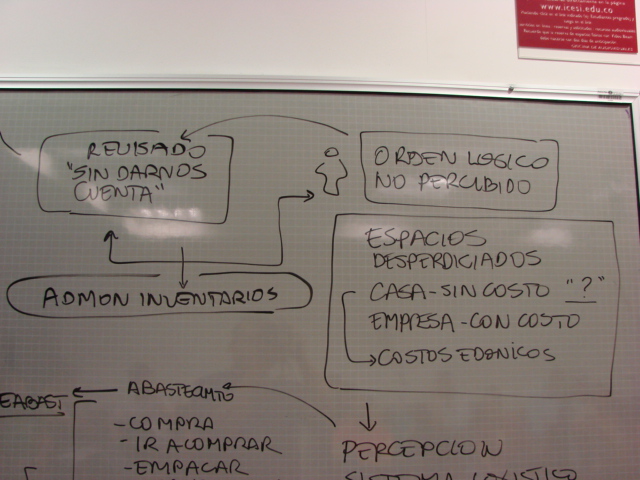 www.icesi.edu.co
REVISADO
"SIN DARNOS
CUENTA"
ORDEN LOGICO
NO PERCIBIDO
ADMON INVENTARIOS
ESPACIOS
DESPERDICIADOS
CASA-SIN COSTO "?"
EMPRESA-CON COSTO
COSTOS EDONICOS
EABAST
ABASTECIMTO
-COMPRA
-IR A COMPRAR
-EMPACAR
PERCEPCION
SISTEMA LOGISTICO